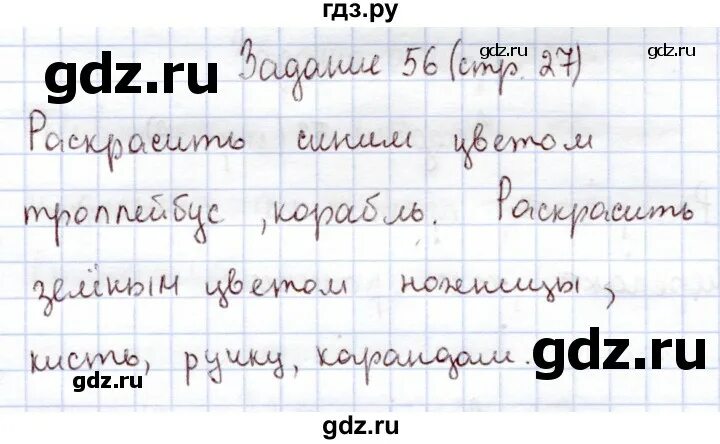 гдз.ру
gdz.ru Задание 56 (стр. 27) gdz.ru gdz.ru
Раскрасить синим цветом
троллейбус, корабль. Раскрасить
зелёным цветом ножницы,
кисть, ручку, карандаш.
gdz.ru gdz.ru
gdz.ru